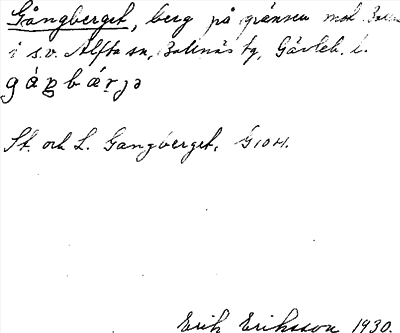 Gångberget, berg på gränsen mot
i s.v. Alfta sn, Bollnäs tg, Gävleb. l.
St. och L. Gangberget, G10H.
Erik Eriksson 1930.